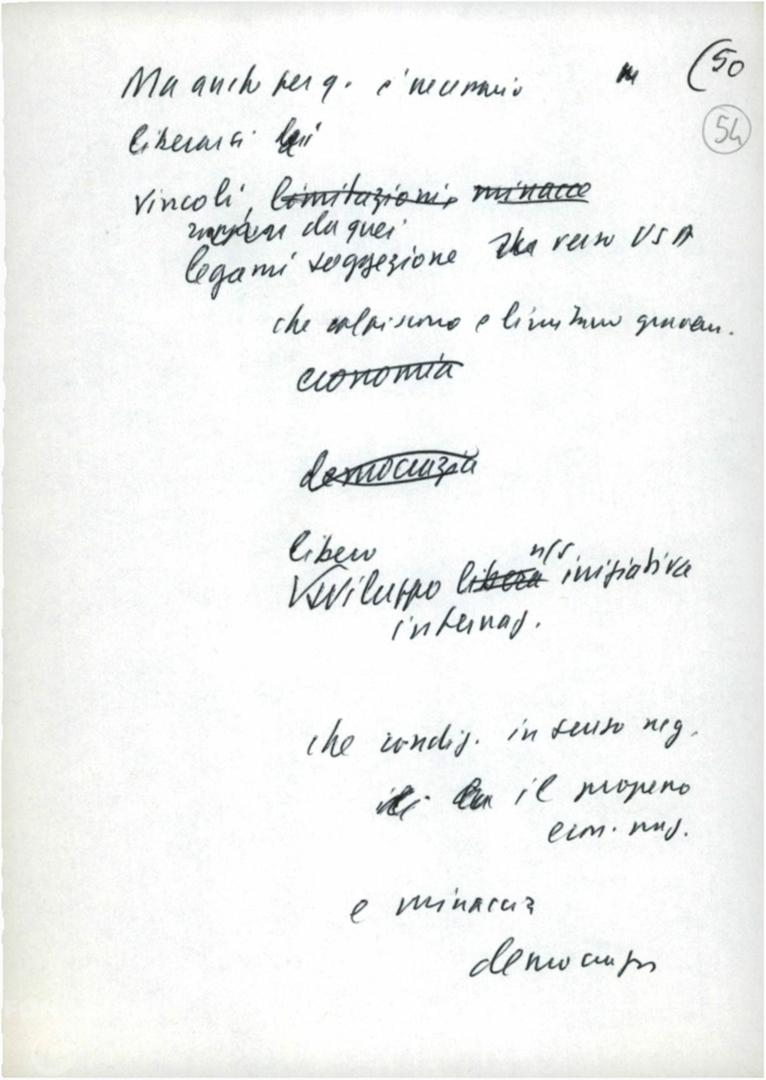 Ma anche per q. è necessario (50
54
liberarci
vincoli, limitazioni, minacce
da quei
legami soggezione verso USA
che colpiscono e limitano gravem.
economia
democrazia
libero
sviluppo libera ns iniziativa
internaz.
che condiz. in senso neg.
il progresso
econ. naz.
e minaccia
democrazia